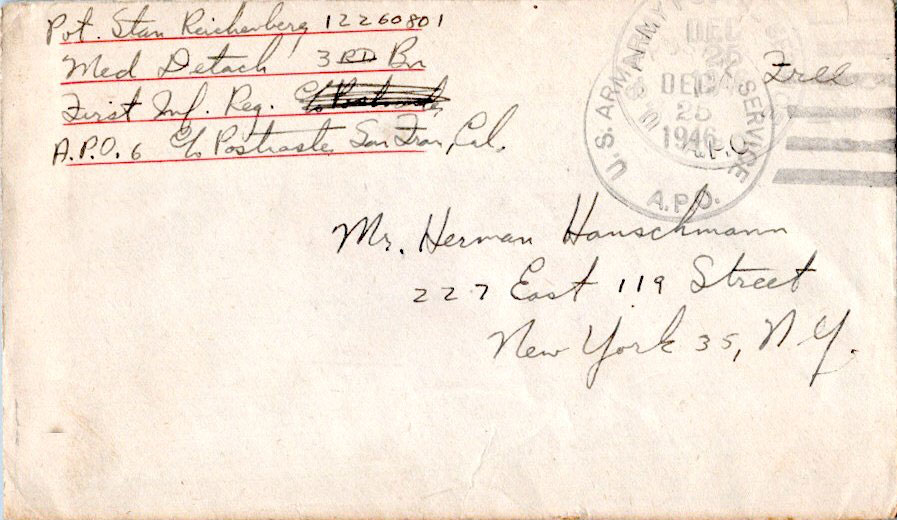 Pvt. Stan Reichenberg 12260801
Med Detach 3RD Bn
First Inf. Reg.
A.P.O. 6 c/o Postmaster San Fran, Cal.
U.S. ARMY SERVICE
DEC
25
1946
A.P.O.
Free
A.P.O.
Mr. Herman Hanschmann
227 East 119 Street
New York 35, N.Y.